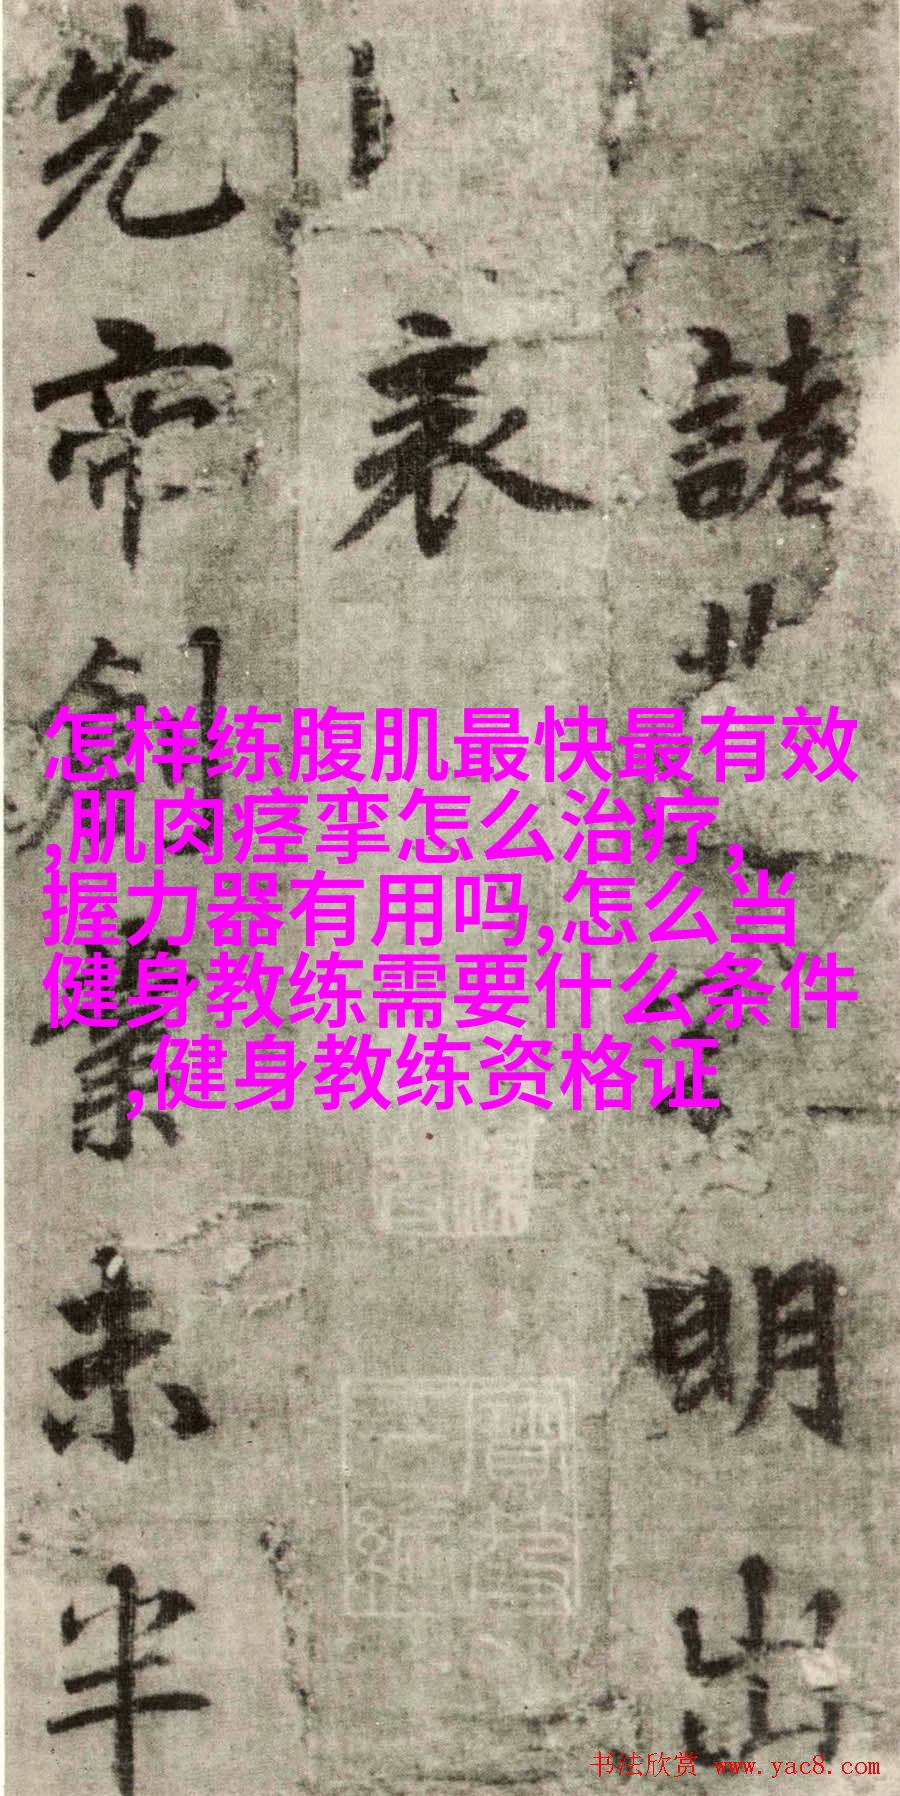 諸明出
表
先帝創業未半
怎样练腹肌最快最有效
,肌肉痉挛怎么治疗,
握力器有用吗,怎么当
健身教练需要什么条件
,健身教练资格证
书法欣赏 www.yac8.com